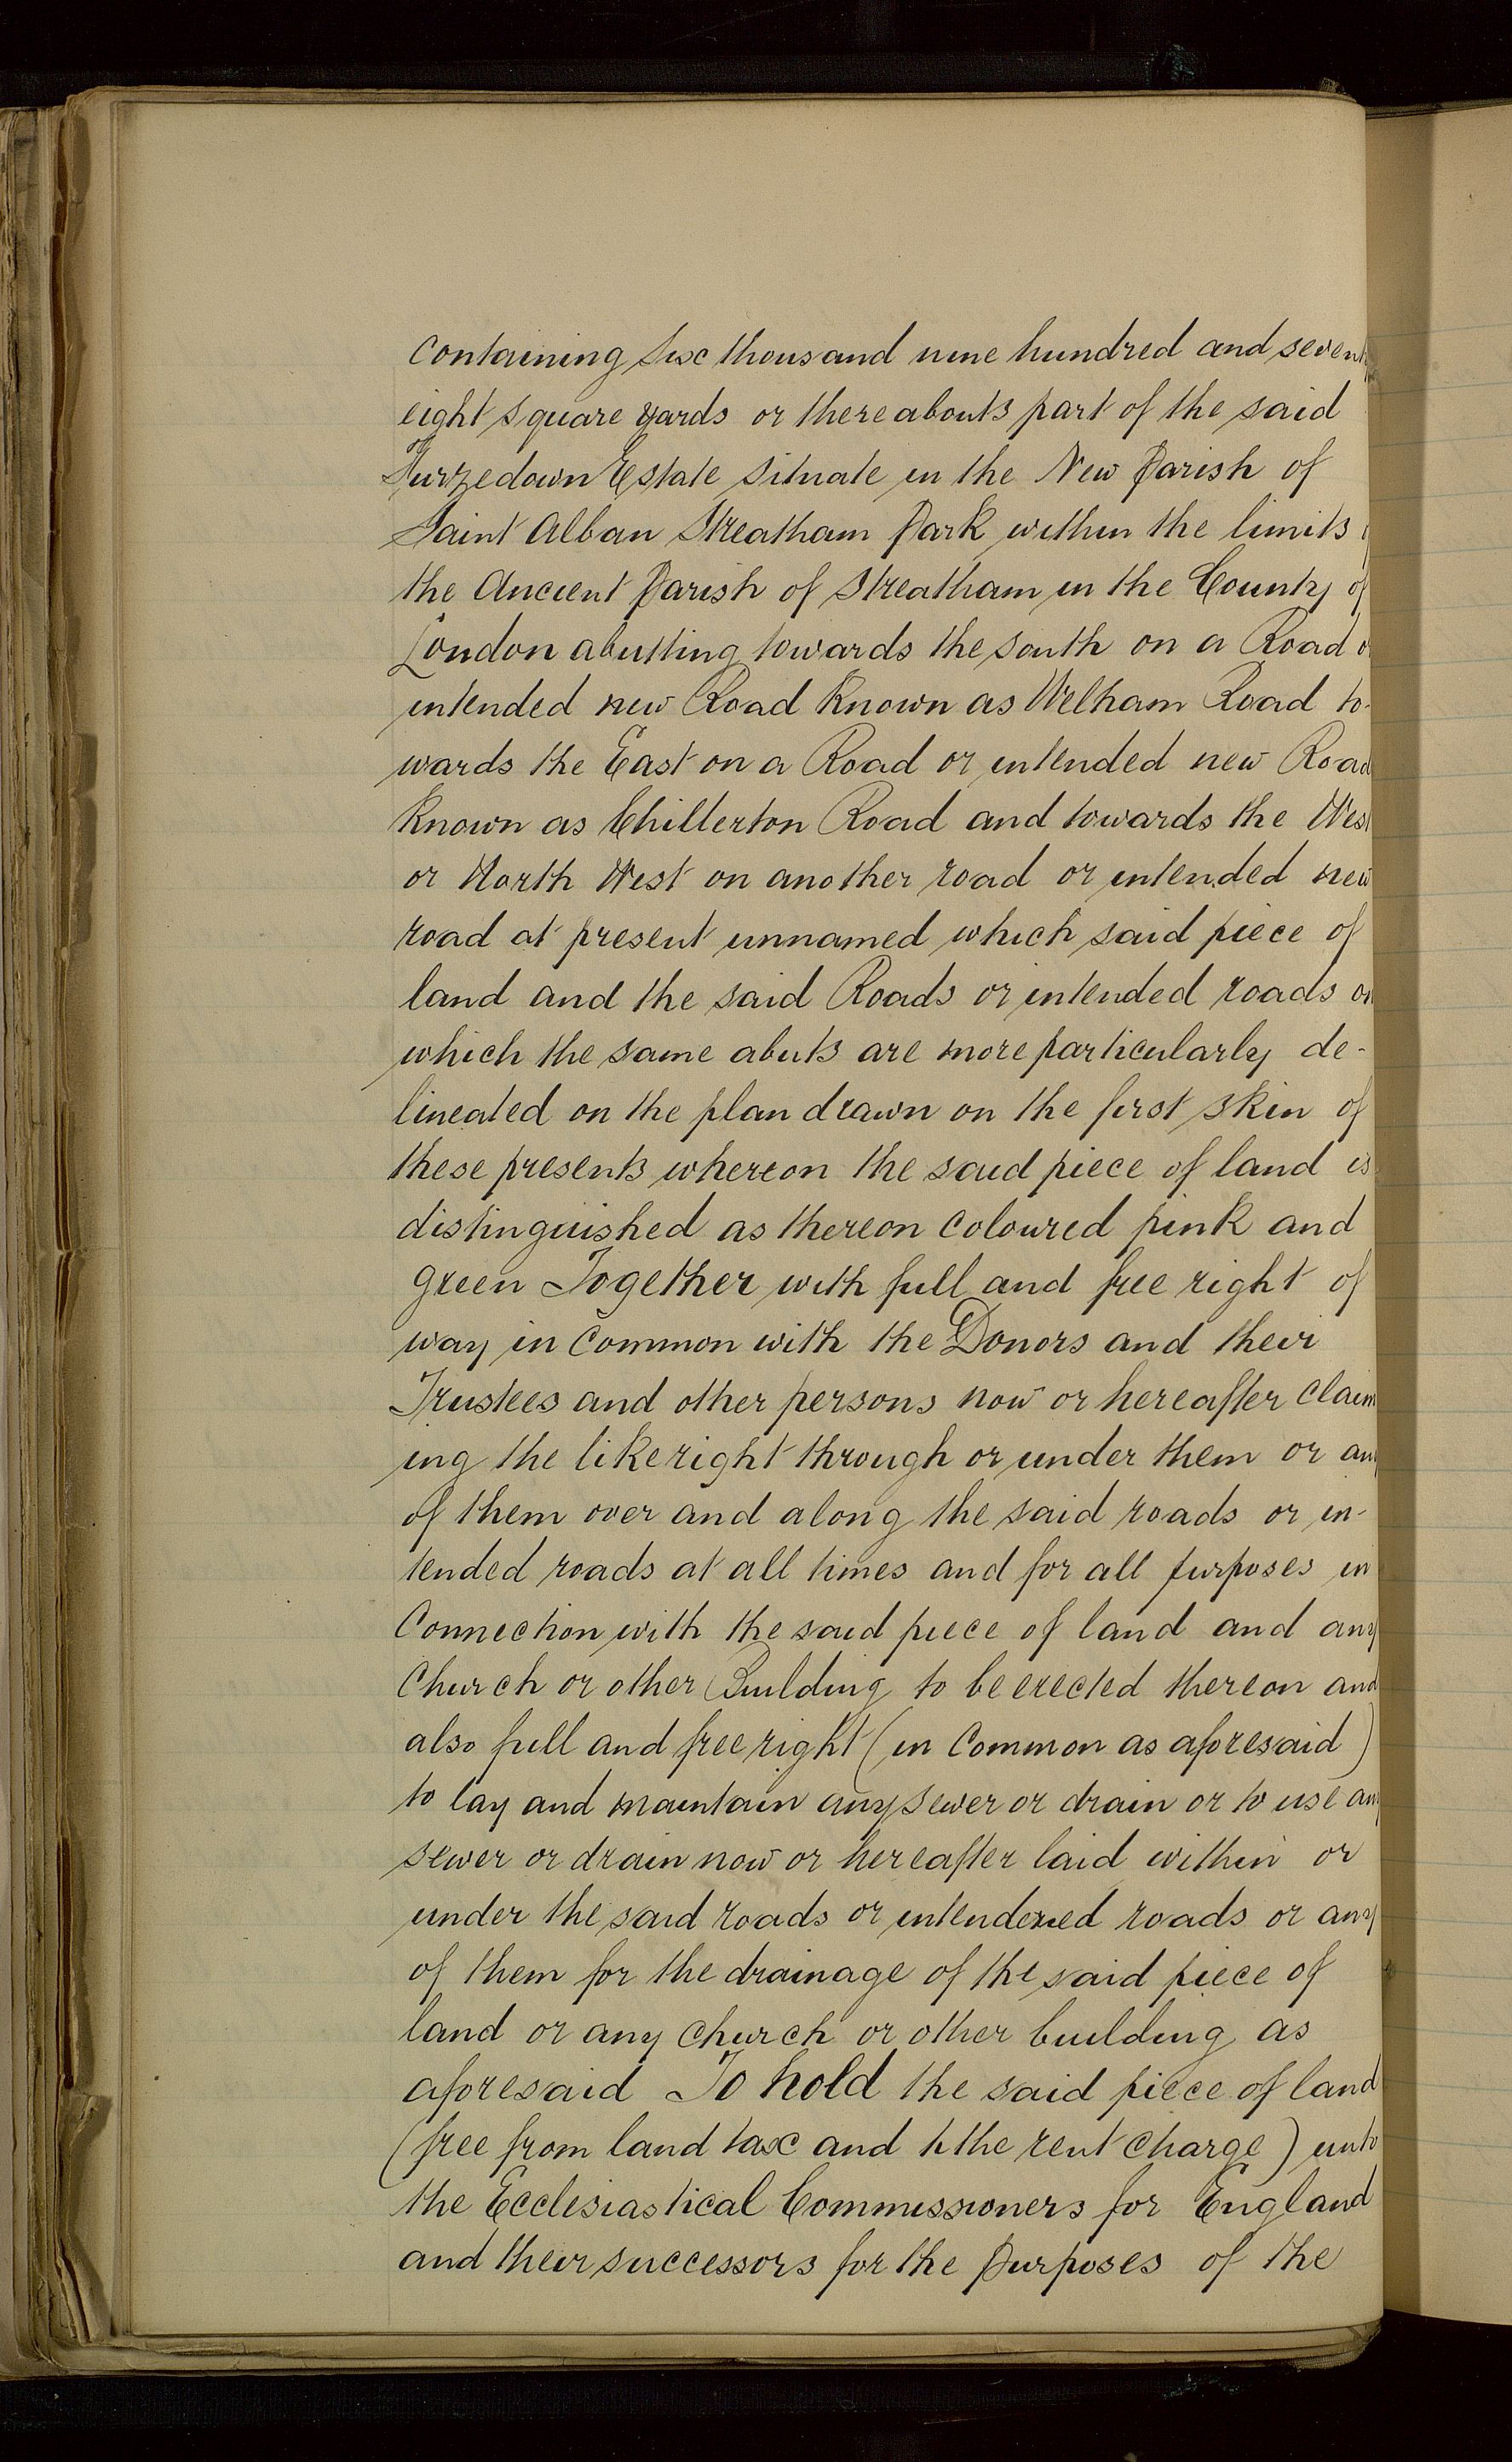 containing six thousand nine hundred and seventy
eight square yards or thereabouts part of the said
Furzedown Estate situate in the New Parish of
Saint Alban Streatham Park within the limits
the Ancient Parish of Streatham in the County of
London abutting towards the South on a Road or
intended new Road known as Welham Road to-
wards the East on a Road or intended new Road
known as Chillerton Road and towards the West
or North West on another road or intended new
road at present unnamed which said piece of
land and the said Roads or intended roads on
which the same abuts are more particularly de-
lineated on the plan drawn on the first skin of
these presents whereon the said piece of land is
distinguished as thereon coloured pink and
green Together with full and free right of
way in common with the Donors and their
Trustees and other persons now or hereafter claim
ing the like right through or under them or any
of them over and along the said roads or in-
tended roads at all times and for all purposes in
connection with the said piece of land and any
Church or other Building to be erected thereon and
also full and free right (in common as aforesaid)
to lay and maintain any sewer or drain or to use any
sewer or drain now or hereafter laid within or
under the said roads or roads or any
of them for the drainage of the said piece of
land or any church or other building as
aforesaid To hold the said piece of land
(free from land tax and tithe rent charge) unto
the Ecclesiastical Commissioners for England
and their successors for the Purposes of the